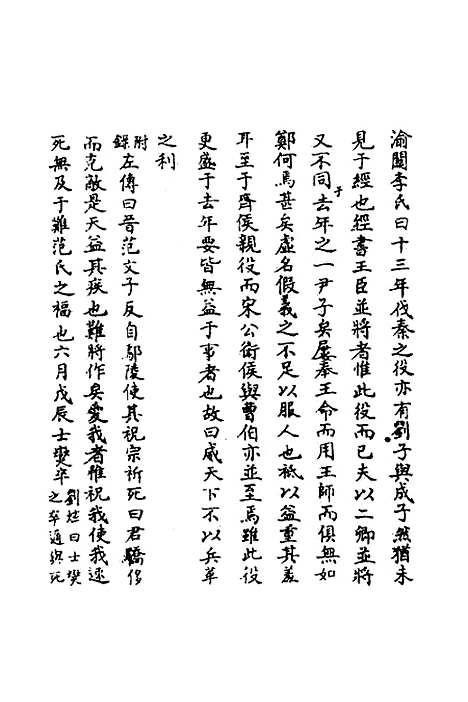 渝關李氏曰十三年伐秦之役亦有劉子與成子然猶未
見于經也經書王臣並將者惟此役而已夫以二卿並將
又不同于去年之一尹子矣屢奉王命而用王師而俱無如
鄭何焉甚矣虛名假義之不足以服人也祗以益重其羞
耳至于齊侯親役而宋公衛侯與曹伯亦並至焉雖此役
更盛于去年要皆無益于事者也故曰威天下不以兵革
之利
附錄左傳曰晉范文子反自鄢陵使其祝宗祈死曰君驕侈
而克敵是天益其疾也難將作矣愛我者惟祝我使我速
死無及于難范氏之福也六月戊辰士燮卒劉炫曰士燮之卒適與死